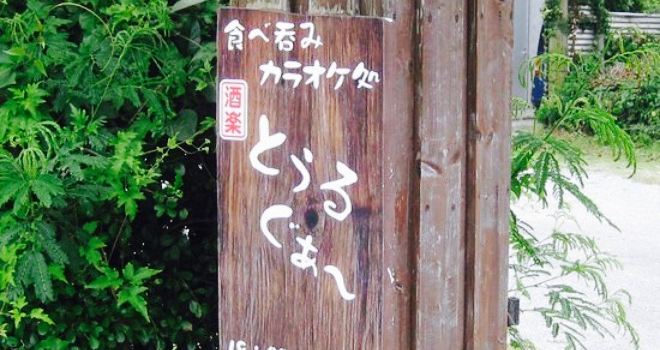 食べ呑み
カラオケ処
酒楽
とぅる
ぐゎ〜